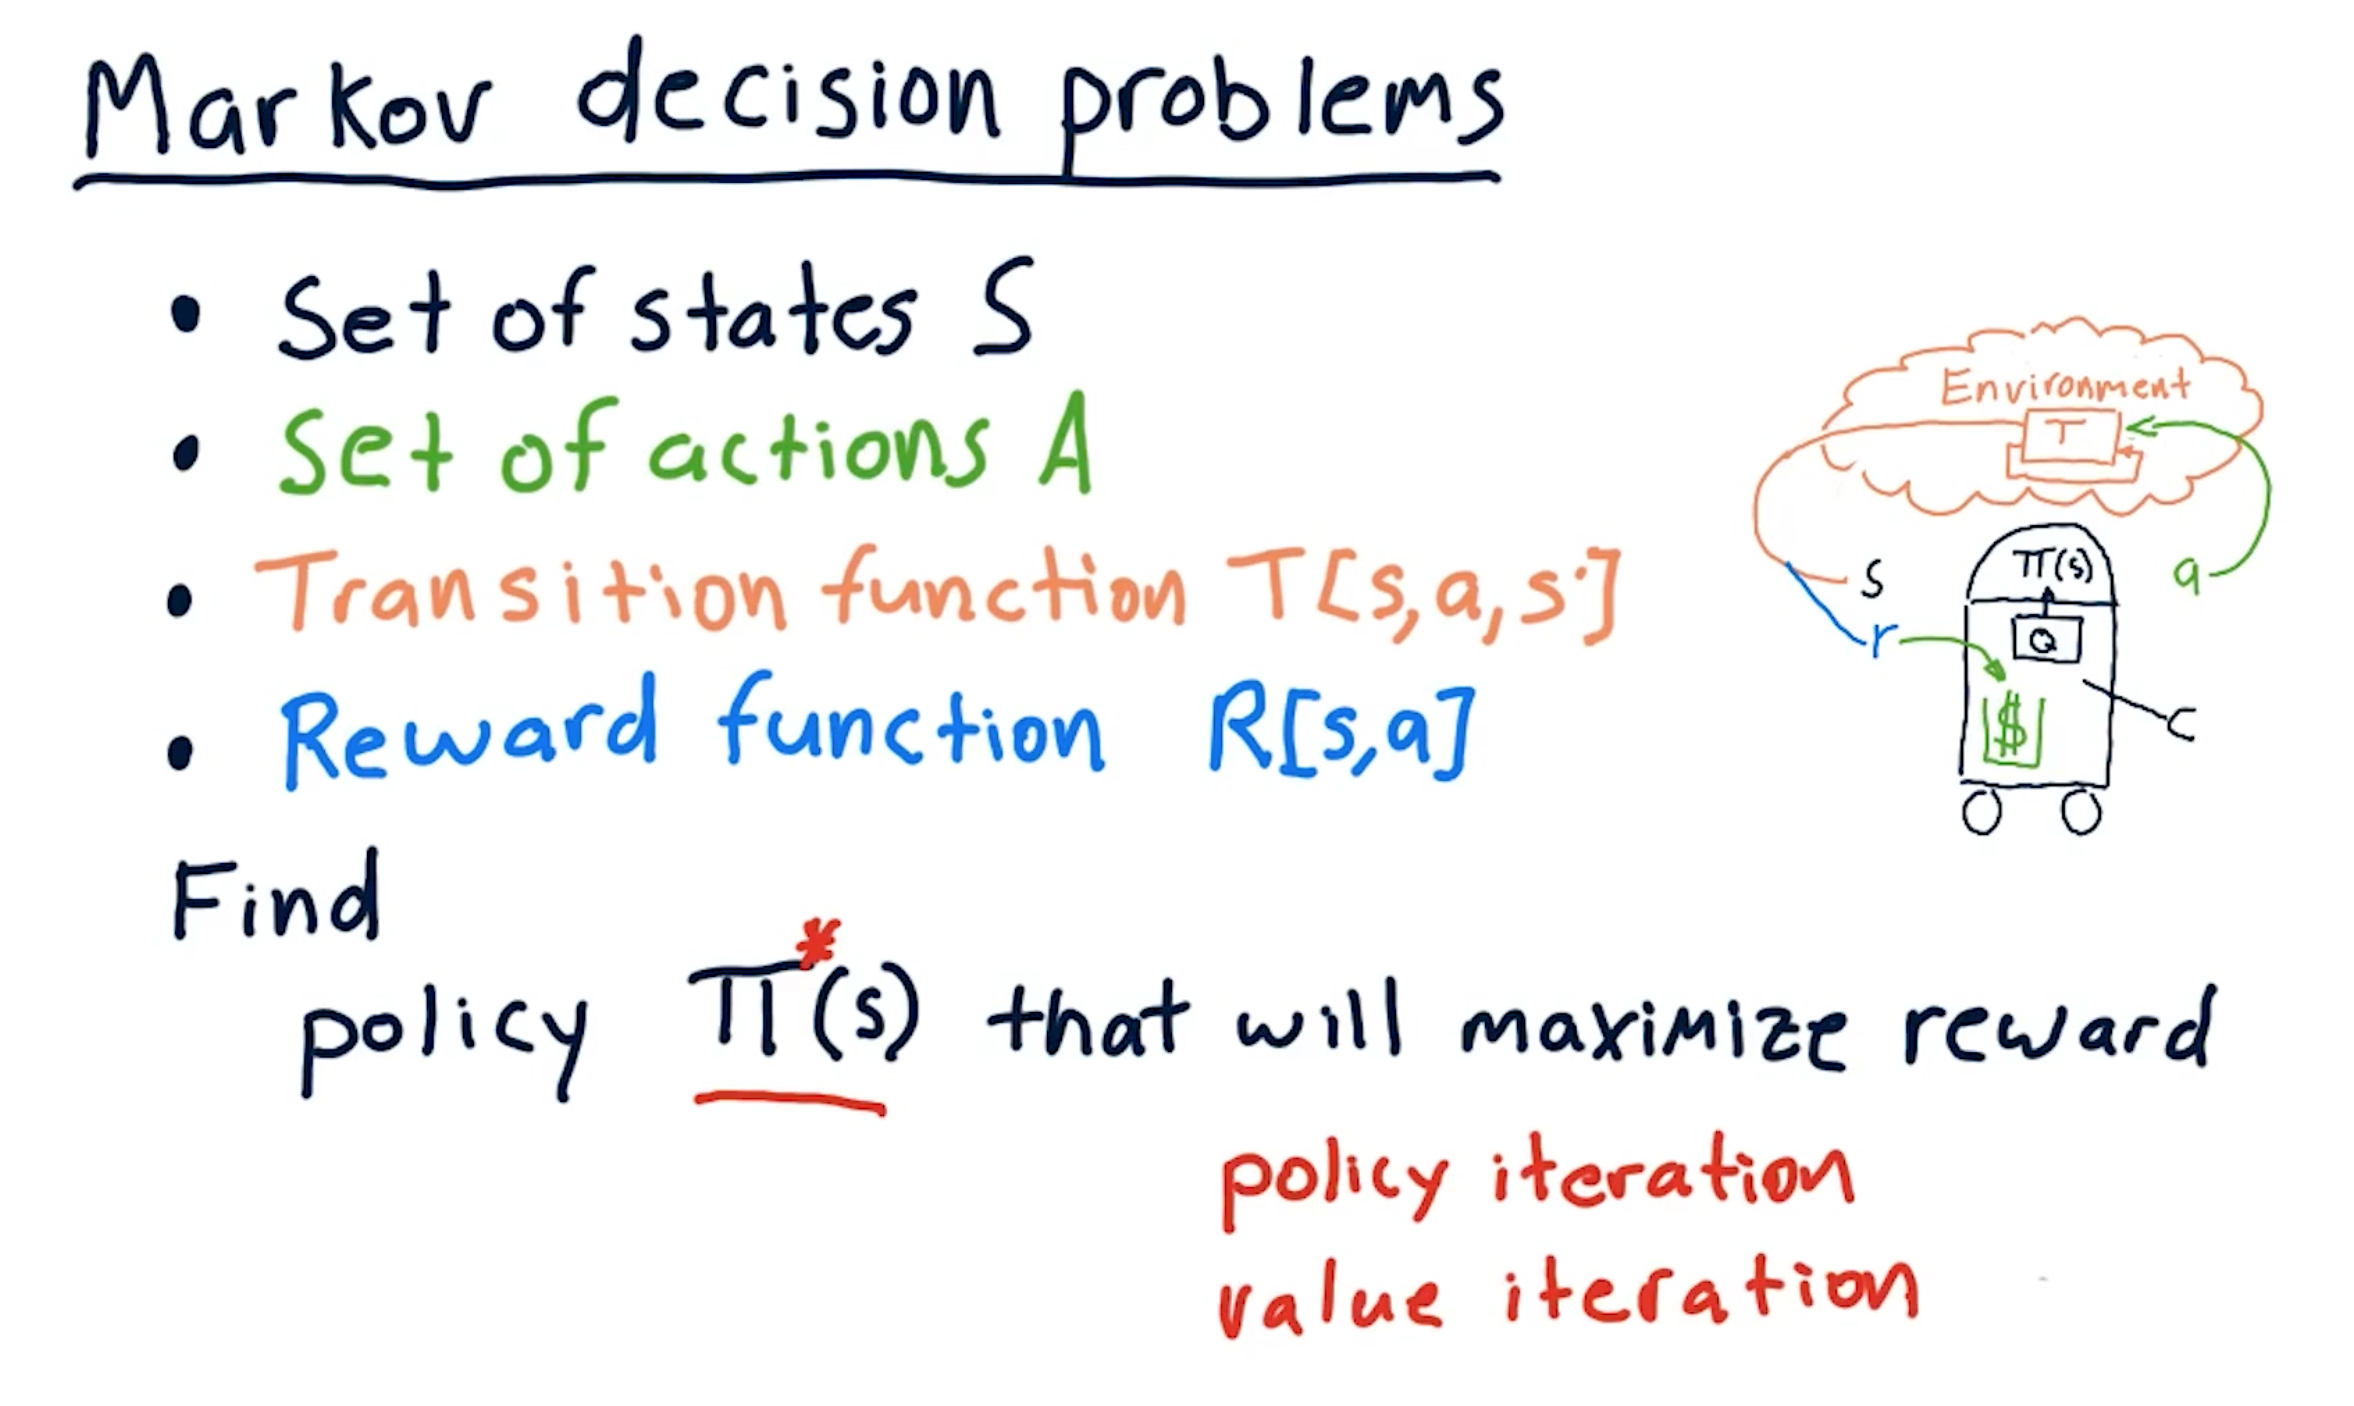 Markov decision problems
• Set of states S
• Set of actions A
• Transition function T[s,a,s']
• Reward function R[s,a]
Environment
T
π(s)
s
a
Q
r
$
Find
policy π*(s) that will maximize reward
policy iteration
value iteration